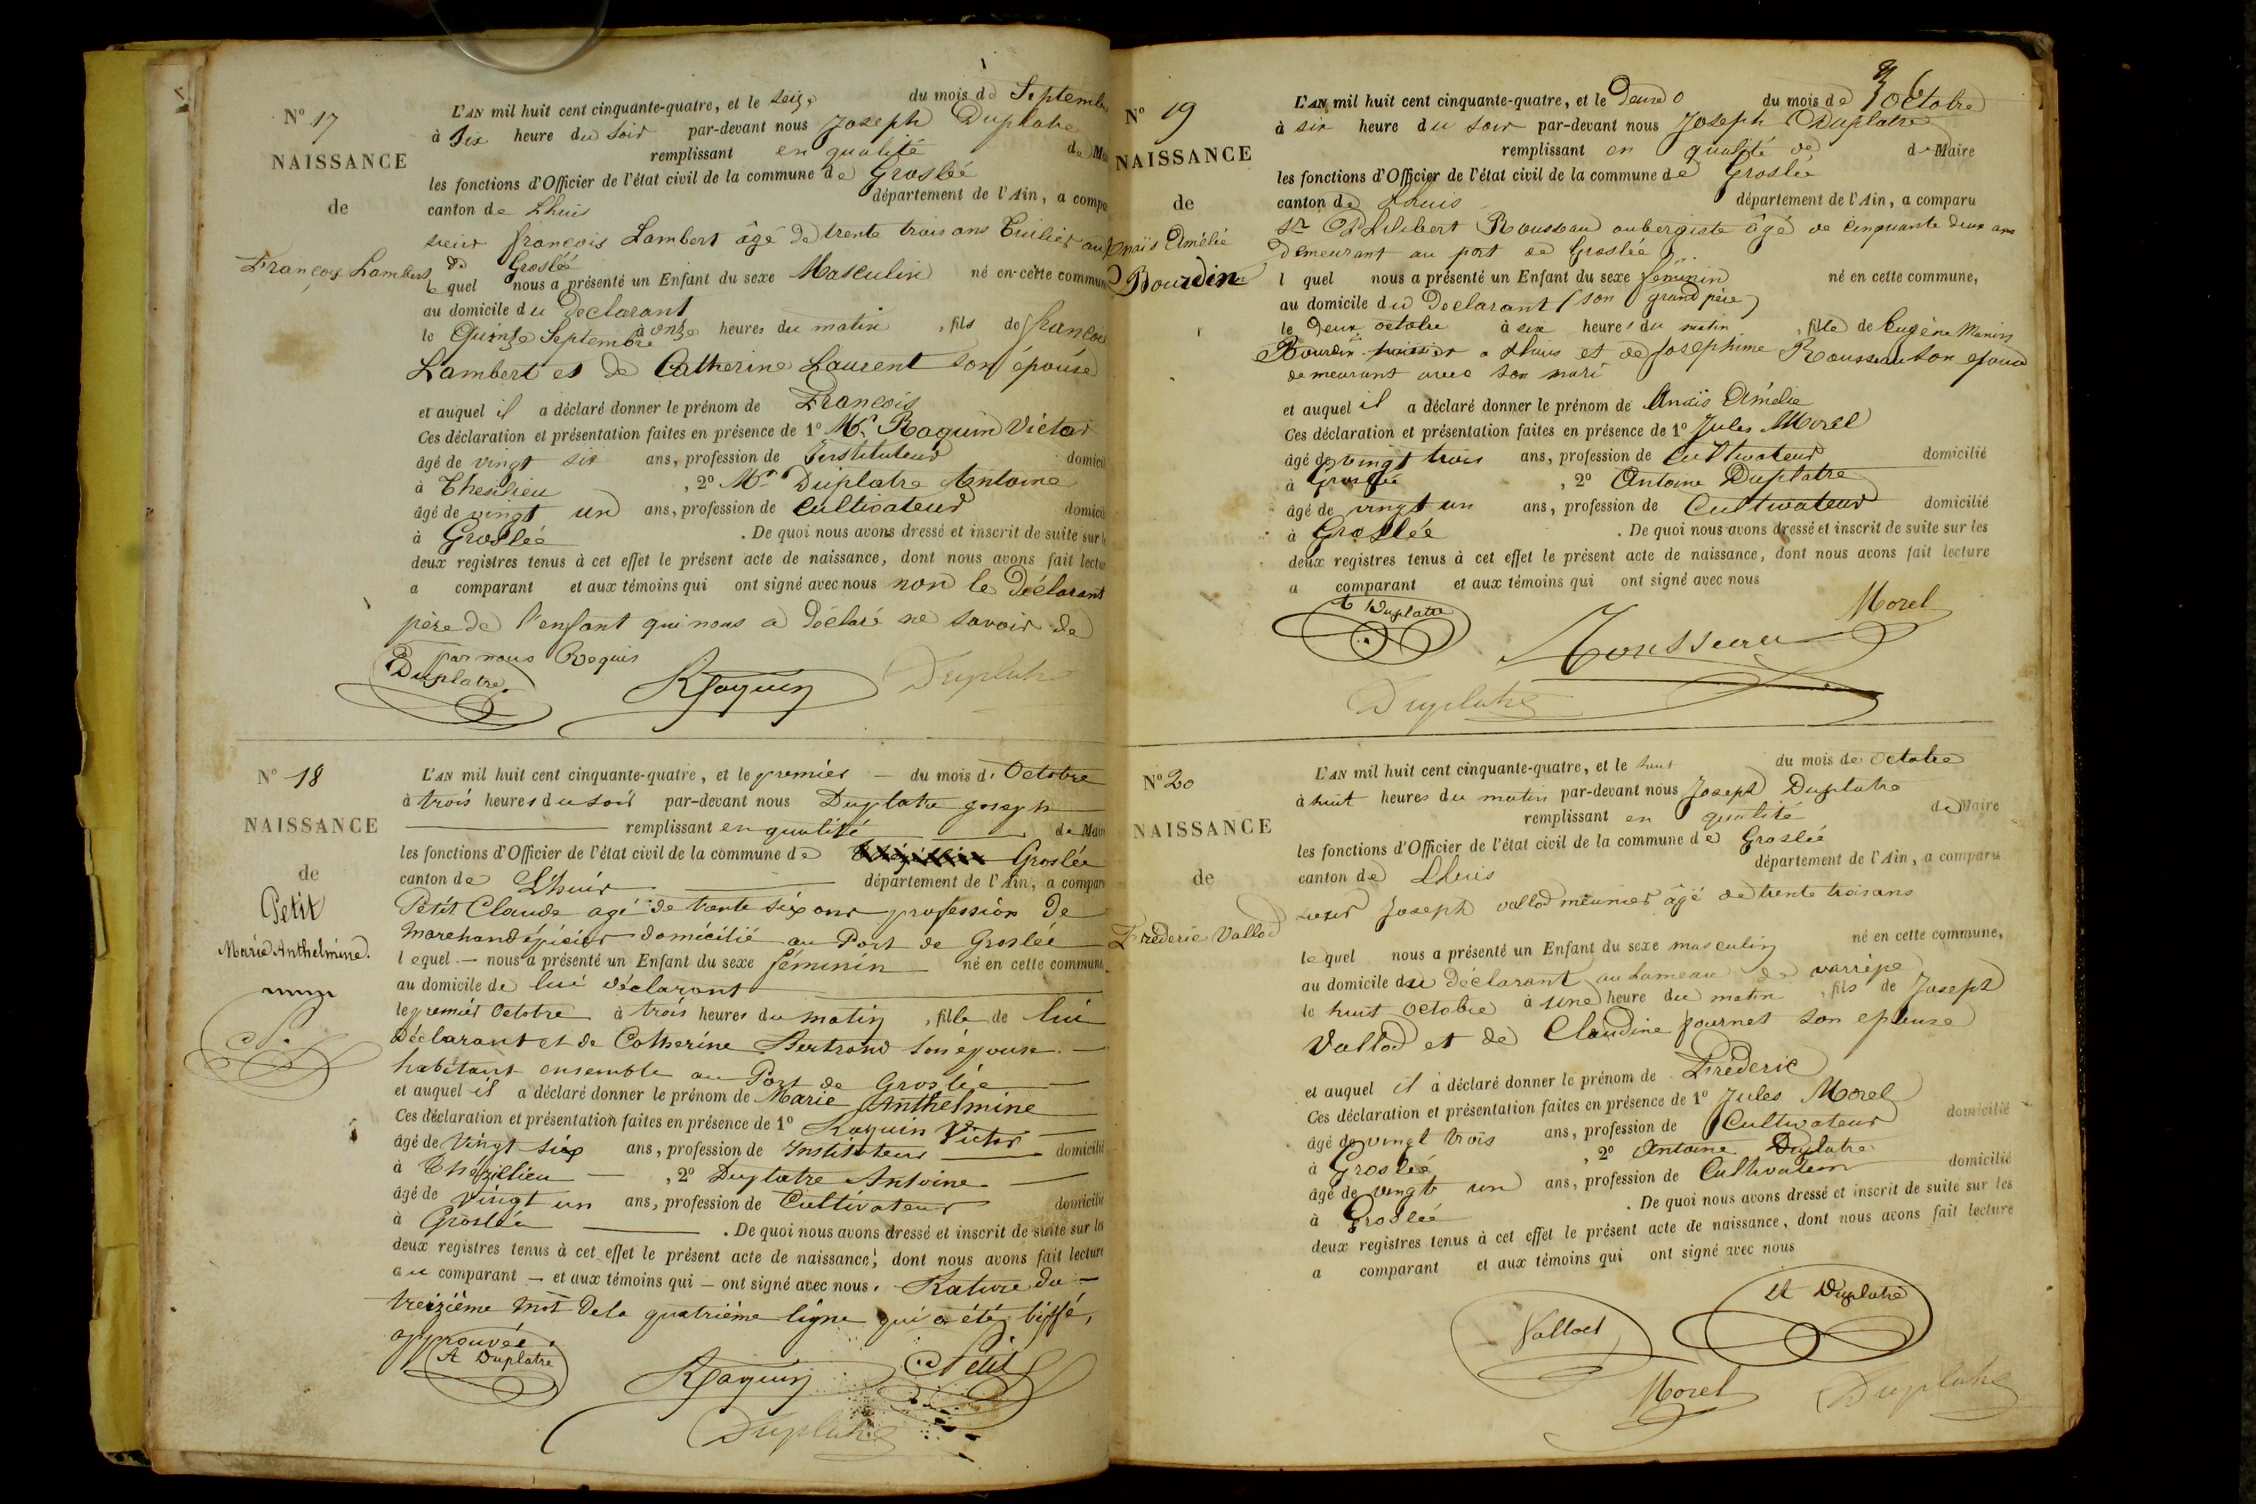 N° 17
NAISSANCE
de
François Lambert
L'AN mil huit cent cinquante-quatre, et le seize du mois de Septembre
à Six heure du soir par-devant nous Joseph Duplatre
remplissant en qualité de Ma
les fonctions d'Officier de l'état civil de la commune de Groslée
canton de Lhuis département de l'Ain, a compa
sieur françois Lambert âgé de trente trois ans Tuilier au
de Groslée
le quel nous a présenté un Enfant du sexe Masculin né en cette commune
au domicile du Declarant
le Quinze Septembre à onze heures du matin, fils de françois
Lambert et de Catherine Laurent son épouse
et auquel il a déclaré donner le prénom de François
Ces déclaration et présentation faites en présence de 1° Mr. Raquin Victor
âgé de vingt six ans, profession de Instituteur domicil
à Thezilieu, 2° Mr Duplatre Antoine
âgé de vingt un ans, profession de Cultivateur domicil
à Groslée. De quoi nous avons dressé et inscrit de suite sur le
deux registres tenus à cet effet le présent acte de naissance, dont nous avons fait lectu
a comparant et aux témoins qui ont signé avec nous non le Déclarant
père de l'enfant qui nous a déclaré ne savoir de
par nous Requis
Duplatre Raquin Duplatre
N° 18
NAISSANCE
de
Petit
Marie Anthelmine.
L'AN mil huit cent cinquante-quatre, et le premier — du mois d' Octobre
à trois heures du soir par-devant nous Duplatre joseph
remplissant en qualité de Mair
les fonctions d'Officier de l'état civil de la commune de Groslée
canton de L'huis département de l'Ain, a compar
Petit Claude agé de trente six ans profession de
Marchand épicier domicilié au Port de Groslée
lequel — nous a présenté un Enfant du sexe féminin né en cette commune,
au domicile de lui déclarant
le premier Octobre à trois heures du matin, fille de lui
Déclarant et de Catherine Bertrand son épouse. —
habitant ensemble au Port de Groslée
et auquel il a déclaré donner le prénom de Marie Anthelmine
Ces déclaration et présentation faites en présence de 1° Raquin Victor
âgé de Vingt six ans, profession de Instituteur domicilié
à Thézillieu —, 2° Duplatre Antoine
âgé de vingt un ans, profession de Cultivateur domicilié
à Groslée. De quoi nous avons dressé et inscrit de suite sur les
deux registres tenus à cet effet le présent acte de naissance, dont nous avons fait lecture
au comparant — et aux témoins qui — ont signé avec nous. Rature du —
treizième mot de la quatrième ligne qui a été biffé,
approuvée.
A Duplatre Raquin Petit
Duplatre
6
N° 19
NAISSANCE
de
Anaïs Amélie
Bourdin
L'AN mil huit cent cinquante-quatre, et le Deux du mois de Octobre
à six heure du soir par-devant nous Joseph Duplatre
remplissant en qualité de de Maire
les fonctions d'Officier de l'état civil de la commune de Groslée
canton de Lhuis département de l'Ain, a comparu
Sr Philibert Rousseau aubergiste âgé de cinquante deux ans
demeurant au port de Groslée
l quel nous a présenté un Enfant du sexe féminin né en cette commune,
au domicile du Declarant (son grand père)
le Deux octobre à six heures du matin, fille de Eugène Manin
Bourdin huissier a Lhuis et de Josephine Rousseau son epouse
demeurant avec son mari
et auquel il a déclaré donner le prénom de Anaïs Amélie
Ces déclaration et présentation faites en présence de 1° Jules Morel
âgé de vingt trois ans, profession de Cultivateur domicilié
à Groslée, 2° Antoine Duplatre
âgé de vingt un ans, profession de Cultivateur domicilié
à Groslée. De quoi nous avons dressé et inscrit de suite sur les
deux registres tenus à cet effet le présent acte de naissance, dont nous avons fait lecture
a comparant et aux témoins qui ont signé avec nous
A Duplatre Rousseau Morel
Duplatre
N° 20
NAISSANCE
de
Fréderic Vallod
L'AN mil huit cent cinquante-quatre, et le huit du mois de Octobre
à huit heures du matin par-devant nous Joseph Duplatre
remplissant en qualité de Maire
les fonctions d'Officier de l'état civil de la commune de Groslée
canton de Lhuis département de l'Ain, a comparu
sieur Joseph vallod meunier âgé de trente trois ans
le quel nous a présenté un Enfant du sexe masculin né en cette commune,
au domicile du déclarant au hameau de varrèpe
le huit Octobre à une heure du matin, fils de Joseph
Vallod et de Claudine fournet son epouse
et auquel il a déclaré donner le prénom de Fréderic
Ces déclaration et présentation faites en présence de 1° Jules Morel
âgé de vingt trois ans, profession de Cultivateur domicilié
à Groslée, 2° Antoine Duplatre
âgé de vingt un ans, profession de Cultivateur domicilié
à Groslée. De quoi nous avons dressé et inscrit de suite sur les
deux registres tenus à cet effet le présent acte de naissance, dont nous avons fait lecture
a comparant et aux témoins qui ont signé avec nous
Vallod A Duplatre
Morel Duplatre